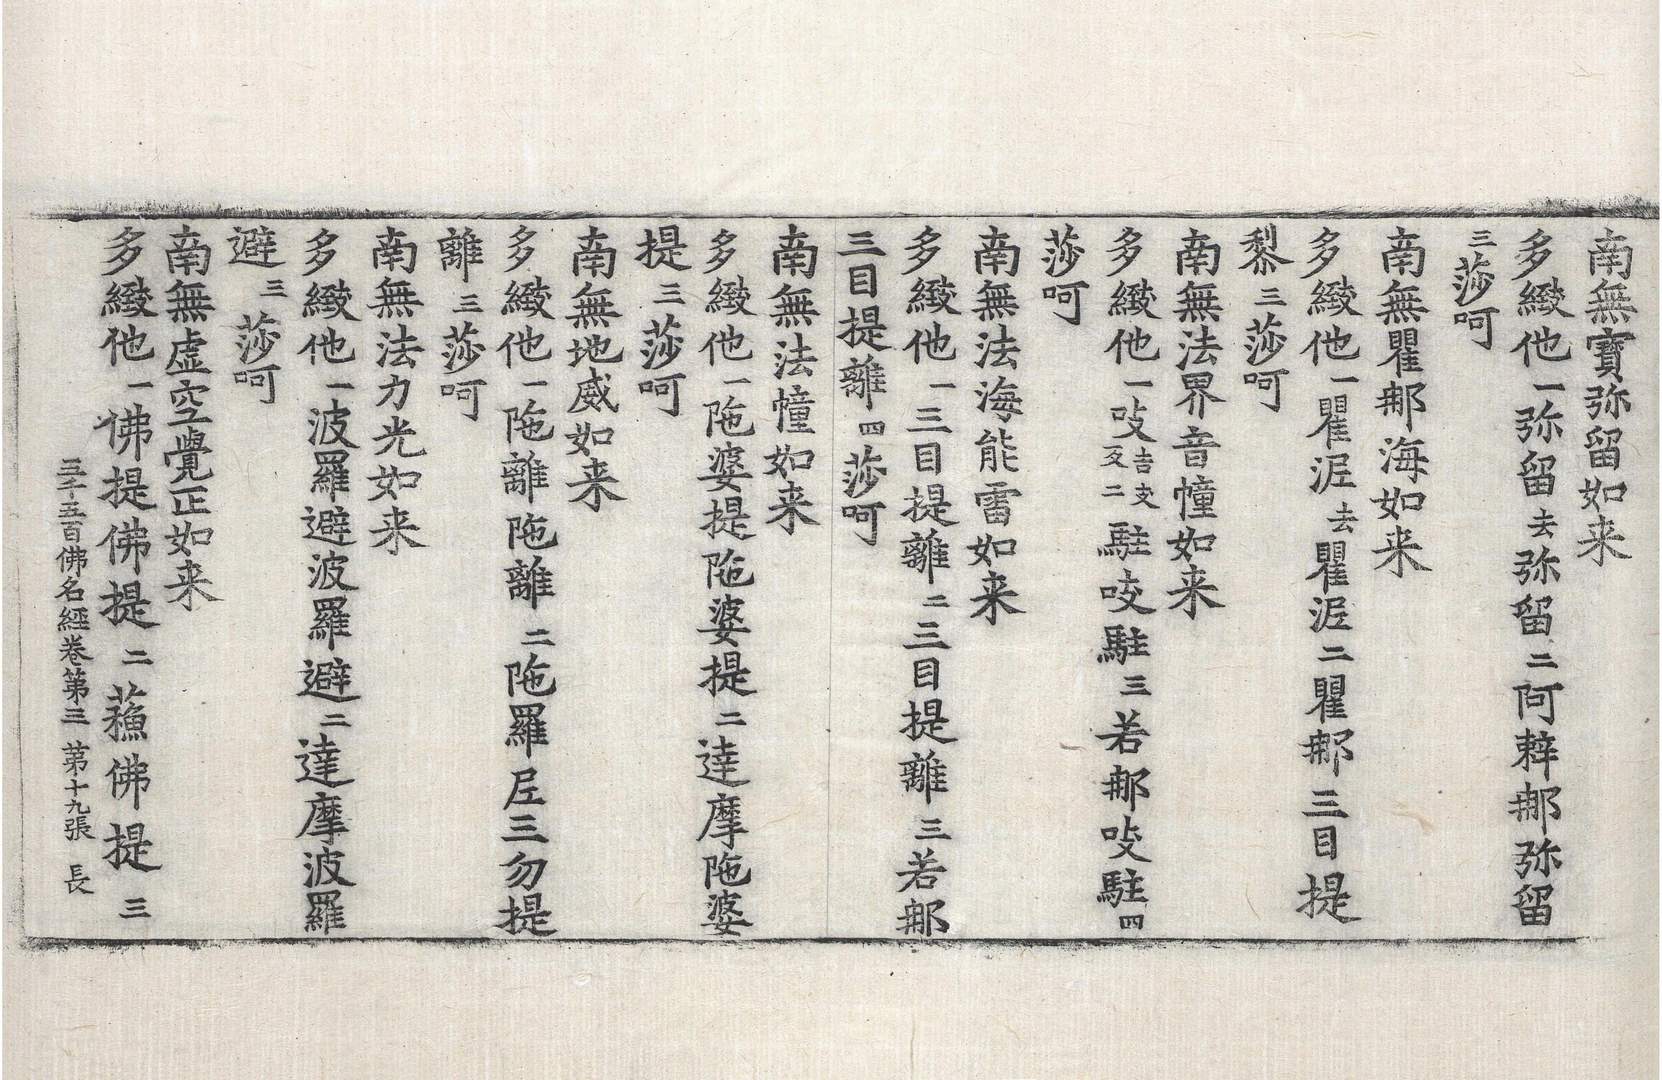 南無寳弥留如来
多緻他一弥留去弥留二阿𨐌那弥留
三莎呵
南無瞿那海如来
多緻他一瞿泥去瞿泥二瞿那三目提
黎三莎呵
南無法界音幢如来
多緻他一咬吉支反二駐咬駐三若那咬駐四
莎呵
南無法海能雷如来
多緻他一三目提離二三目提離三若那
三目提離四莎呵
南無法幢如来
多緻他一陁婆提陁婆提二達摩陁婆
提三莎呵
南無地威如来
多緻他一陁離陁離二陁羅𡰱三勿提
離三莎呵
南無法力光如来
多緻他一波羅避波羅避二達摩波羅
避三莎呵
南無虛空覺正如来
多緻他一佛提佛提二蘓佛提三
三千五百佛名經卷第三 第十九張 長